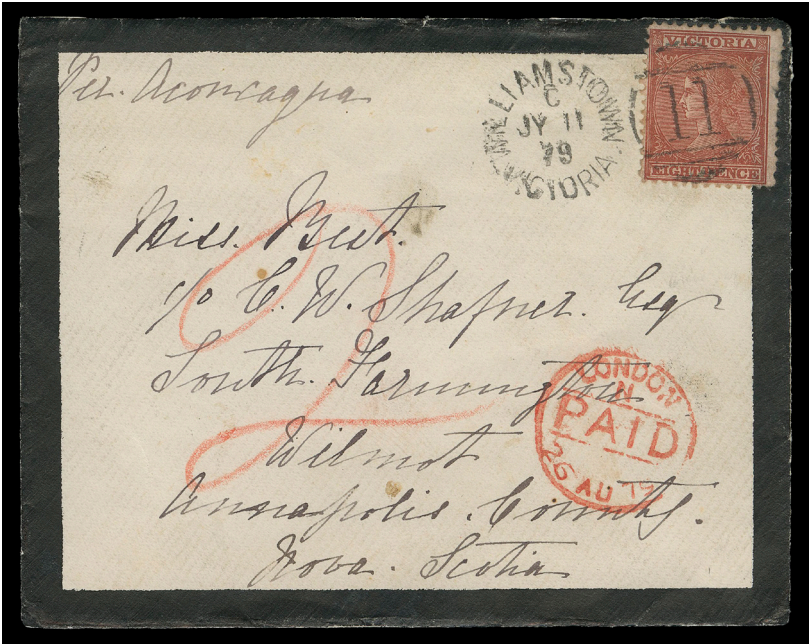 Per. Aconcagua
WILLIAMSTOWN
C
JY 11
79
VICTORIA
VICTORIA
11
EIGHT PENCE
Miss. Best.
c/o C. W. Shafner. Esqr
South. Farmington
Wilmot
Annapolis. County.
Nova. Scotia
2
LONDON
N
PAID
26 AU 79